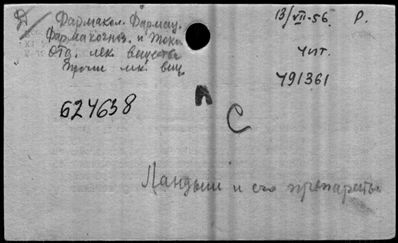 Фармакол. Фармац.
Фармакогноз. и Токс
Отд. лек. вещества
Проч. лек. вещ.
13/VII-56 Р.
Чит.
491361
624638
П
С
Ландыш и его препараты